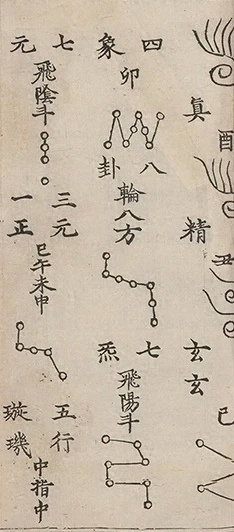 酉
丑
巳
真
精
玄玄
四象
卯
八卦
輪八方
七炁
飛陽斗
七元
飛陰斗
三元
一正
巳午未申
五行
璇璣
中指中